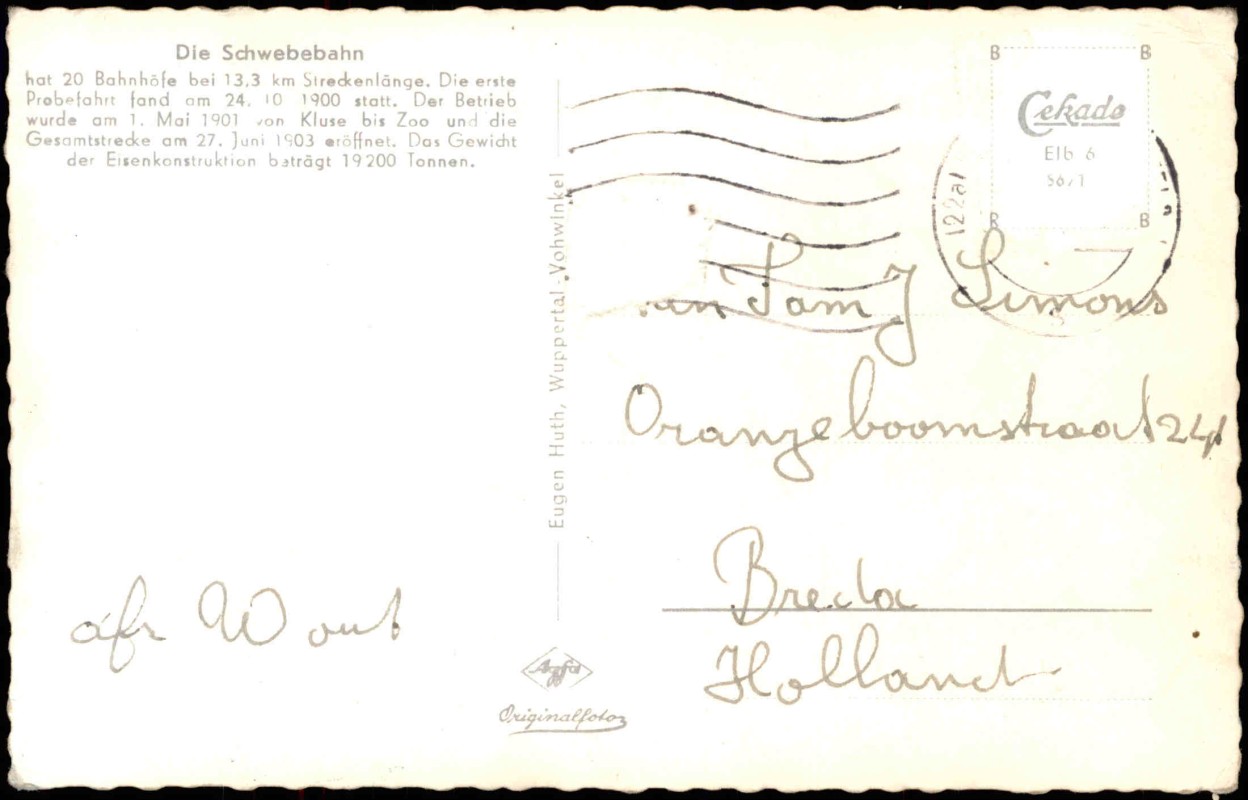 Die Schwebebahn
hat 20 Bahnhöfe bei 13,3 km Streckenlänge. Die erste
Probefahrt fand am 24. 10 1900 statt. Der Betrieb
wurde am 1. Mai 1901 von Kluse bis Zoo und die
Gesamtstrecke am 27. Juni 1903 eröffnet. Das Gewicht
der Eisenkonstruktion beträgt 19200 Tonnen.
Eugen Huth, Wuppertal-Vohwinkel
B B
Cekade
Elb 6
B B
(22a)
Fam J Simons
Oranjeboomstraat 24
Breda
Holland
afz Wout
Agfa
Originalfoto